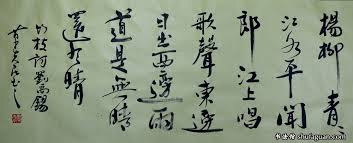 楊柳青〻
江水平聞
郎江上唱
歌聲東邊
日出西邊雨
道是無晴
還有晴
竹枝詞劉禹錫
shufaguan.com